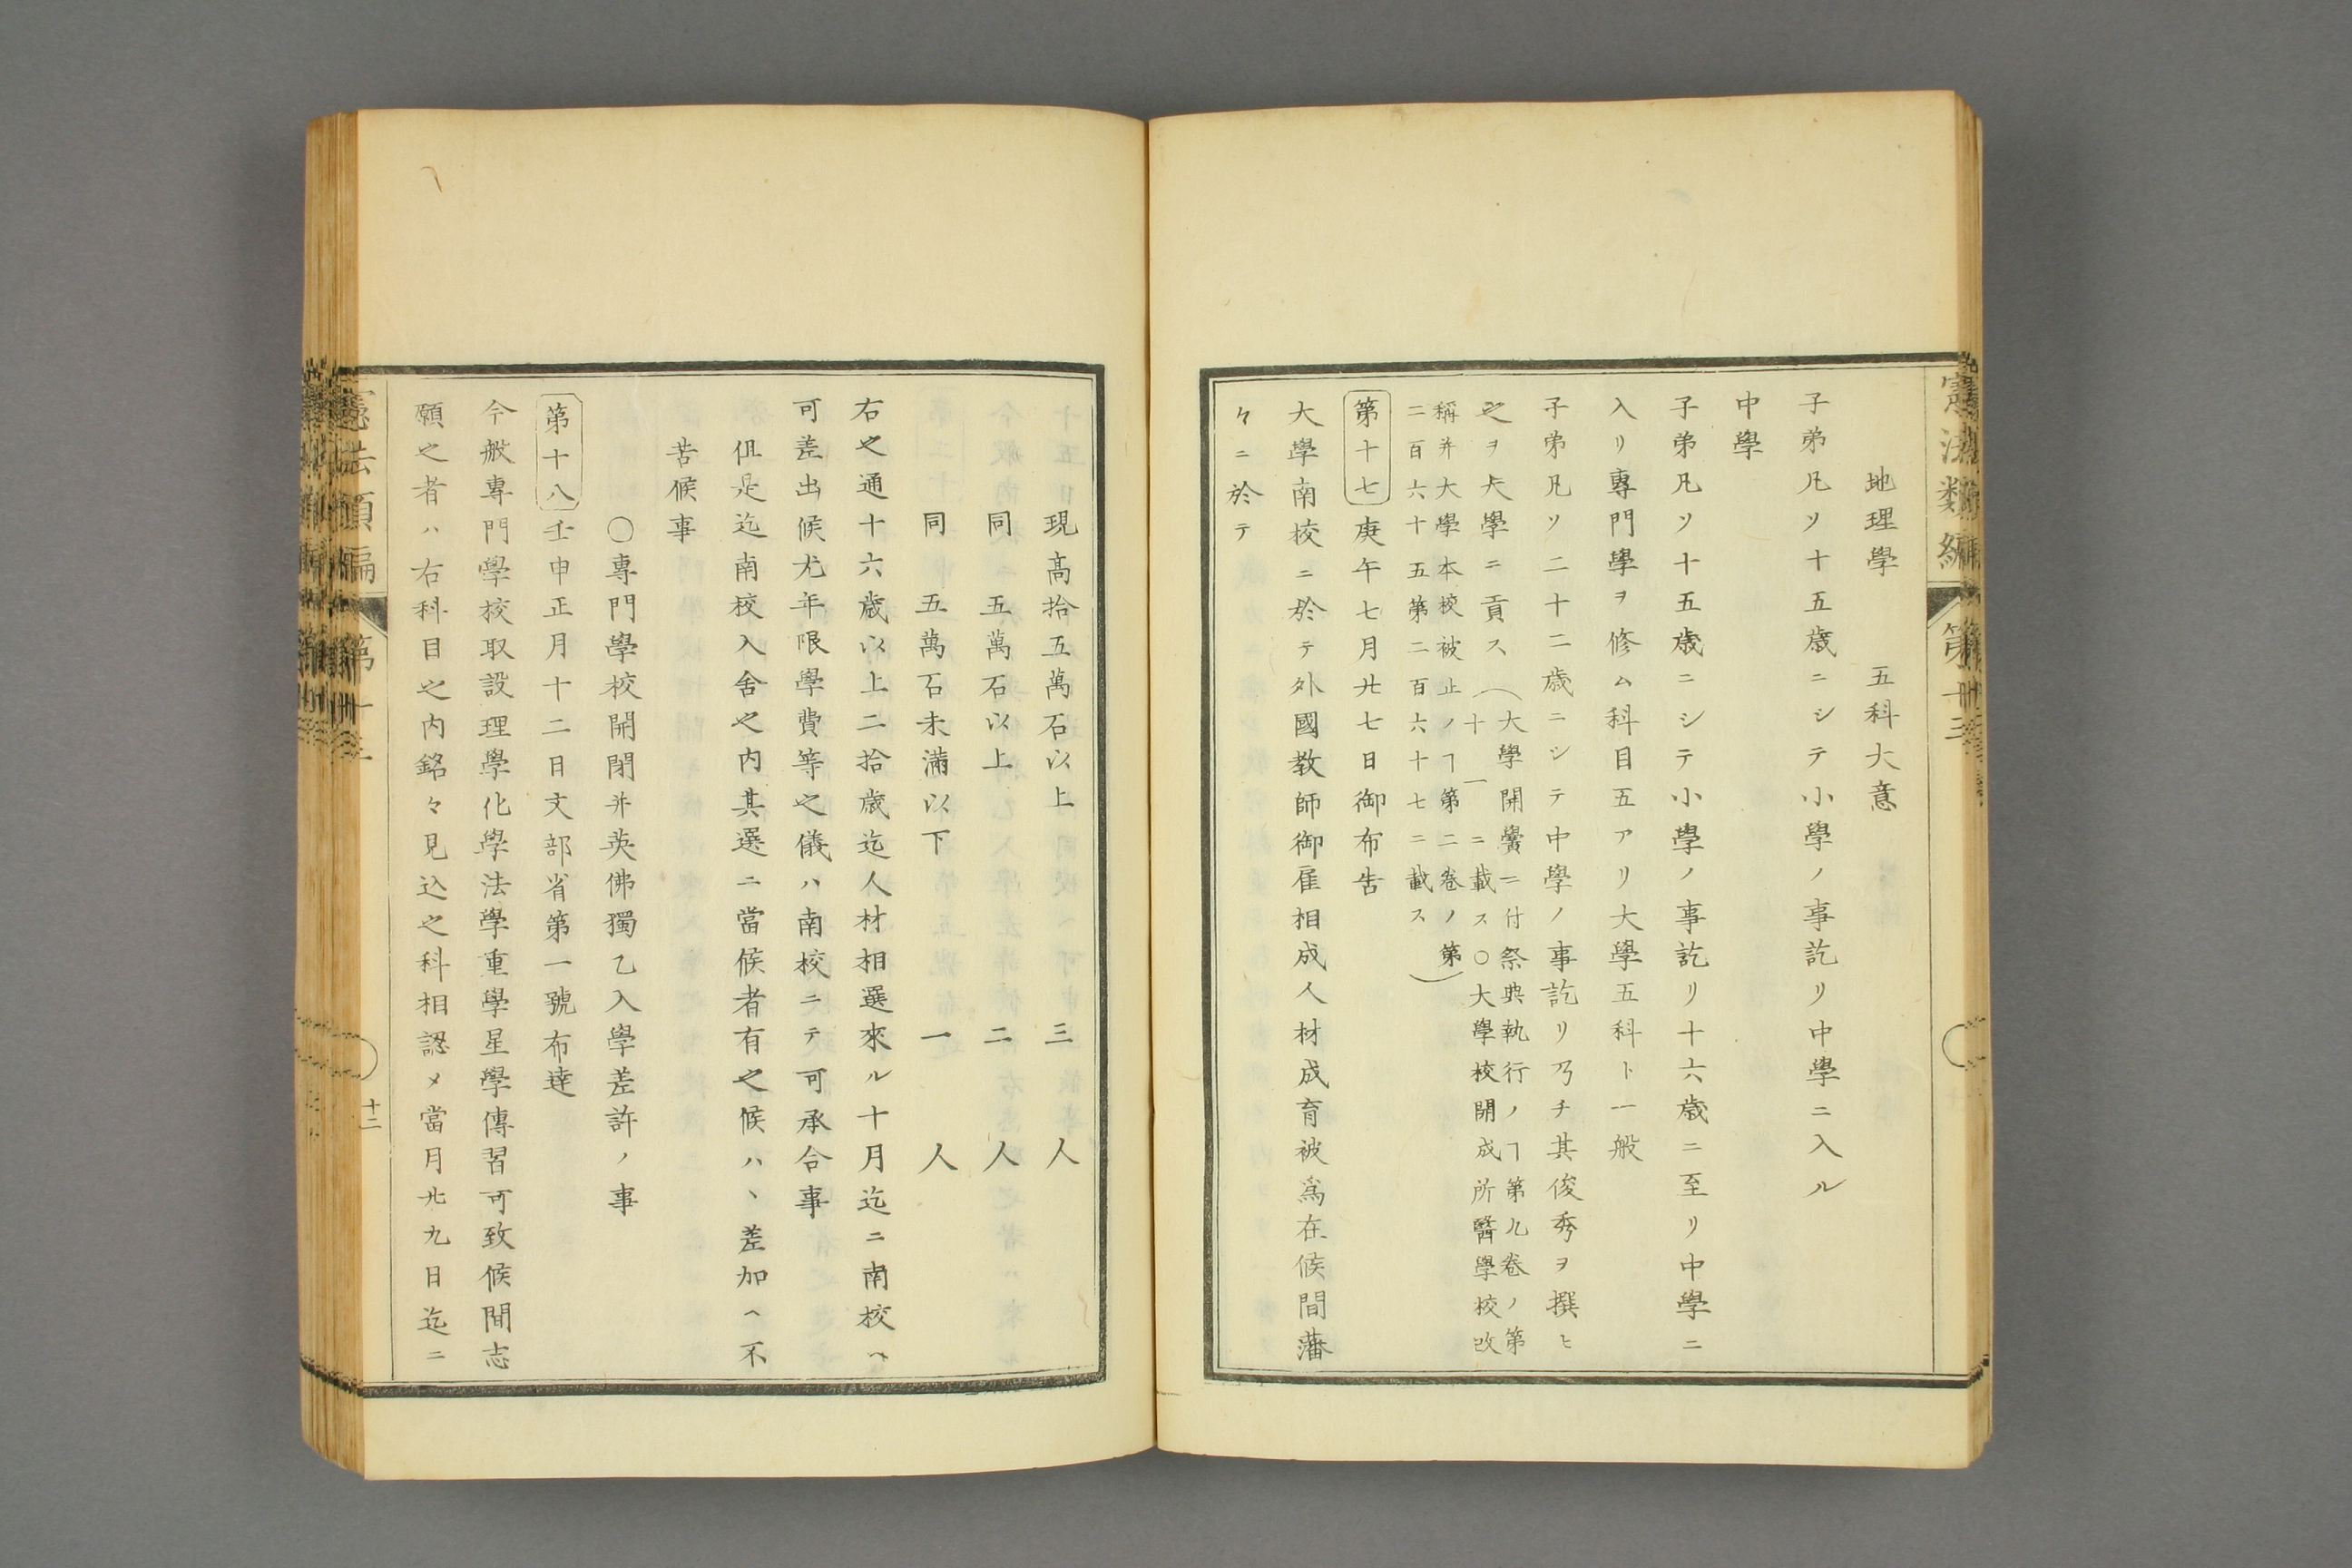 憲法類編 第十三
地理學 五科大意
子弟凡ソ十五歳ニシテ小學ノ事訖リ中學ニ入ル
中學
子弟凡ソ十五歳ニシテ小學ノ事訖リ十六歳ニ至リ中學ニ
入リ專門學ヲ修ム科目五アリ大學五科ト一般
子弟凡ソ二十二歳ニシテ中學ノ事訖リ乃チ其俊秀ヲ撰ヒ
之ヲ大學ニ貢ス(大學開黌ニ付祭典執行ノヿ第九巻ノ第
十一ニ載ス〇大學校開成所醫學校改
稱并大學本校被止ノヿ第二巻ノ第
二百六十五第二百六十七ニ載ス)
第十七 庚午七月廿七日御布告
大學南校ニ於テ外國教師御雇相成人材成育被爲在候間藩
々ニ於テ
現高拾五萬石以上 三人
同 五萬石以上 二人
同 五萬石未滿以下 一人
右之通十六歳以上二拾歳迄人材相選來ル十月迄ニ南校ヘ
可差出候尤年限學費等之儀ハ南校ニテ可承合事
但是迄南校入舍之内其選ニ當候者有之候ハヽ差加ヘ不
苦候事
〇專門學校開閉并英佛獨乙入學差許ノ事
第十八 壬申正月十二日文部省第一號布達
今般專門學校取設理學化學法學重學星學傳習可致候間志
願之者ハ右科目之内銘々見込之科相認メ當月廿九日迄ニ
憲法類編 第十三
十二